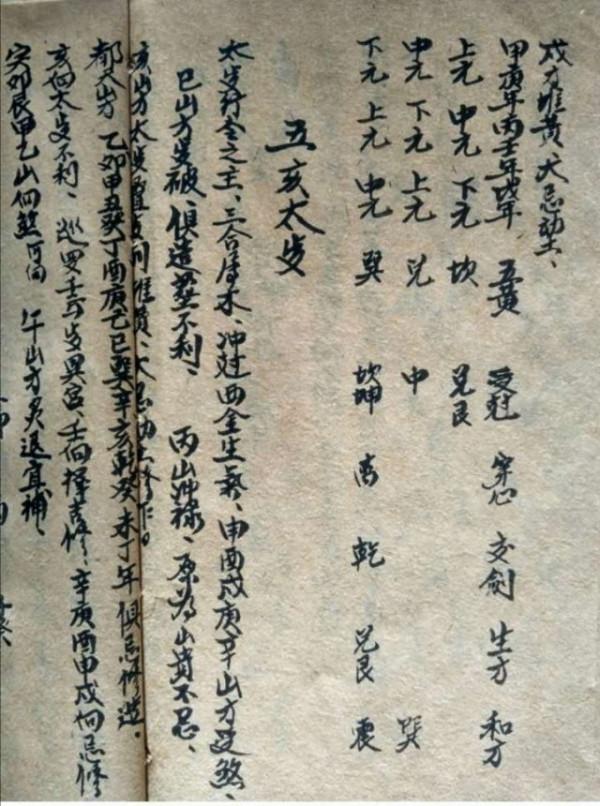 戌方堆黄大忌动土、
甲庚年丙壬年戊年 五黄 受尅 穿心 交剑 生方 和方
上元 中元 下元 坎 兑艮
中元 下元 上元 兑 中 巽
下元 上元 中元 巽 坎坤 离 乾 兑艮 震
五亥太岁
太岁行令之主、三合木、冲尅酉金生、申酉戌庚辛山方逆煞、
巳山方岁破、俱造葬不利、 丙山冲禄、原为山贵不忌、
亥山方太岁堆黄、大忌动土修作。
都天方 乙卯甲丑癸丁酉庚巳巽辛亥乾癸未丁年俱忌修造、
亥向太岁不利、巡罗壬岁巽宫、壬向择吉修、辛庚酉申戌向忌修
寅卯辰甲乙山向煞 午山方灸退宜补、